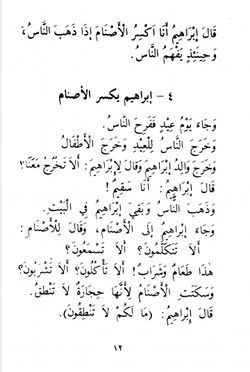 قَالَ إِبْرَاهِيمُ أَنَا أَكْسِرُ الْأَصْنَامَ إِذَا ذَهَبَ النَّاسُ،
وَحِينَئِذٍ يَفْهَمُ النَّاسُ.
٤ - إبراهيم يكسر الأصنام
وَجَاءَ يَوْمُ عِيدٍ فَفَرِحَ النَّاسُ.
وَخَرَجَ النَّاسُ لِلْعِيدِ وَخَرَجَ الْأَطْفَالُ
وَخَرَجَ وَالِدُ إِبْرَاهِيمَ وَقَالَ لِإِبْرَاهِيمَ: أَلَا تَخْرُجُ مَعَنَا؟
قَالَ إِبْرَاهِيمُ: أَنَا سَقِيمٌ!
وَذَهَبَ النَّاسُ وَبَقِيَ إِبْرَاهِيمُ فِي الْبَيْتِ.
وَجَاءَ إِبْرَاهِيمُ إِلَى الْأَصْنَامِ، وَقَالَ لِلْأَصْنَامِ:
أَلَا تَتَكَلَّمُونَ؟ أَلَا تَسْمَعُونَ؟
هٰذَا طَعَامٌ وَشَرَابٌ! أَلَا تَأْكُلُونَ؟ أَلَا تَشْرَبُونَ؟
وَسَكَتَتِ الْأَصْنَامُ لِأَنَّهَا حِجَارَةٌ لَا تَنْطِقُ.
قَالَ إِبْرَاهِيمُ: (مَا لَكُمْ لَا تَنْطِقُونَ).
١٢